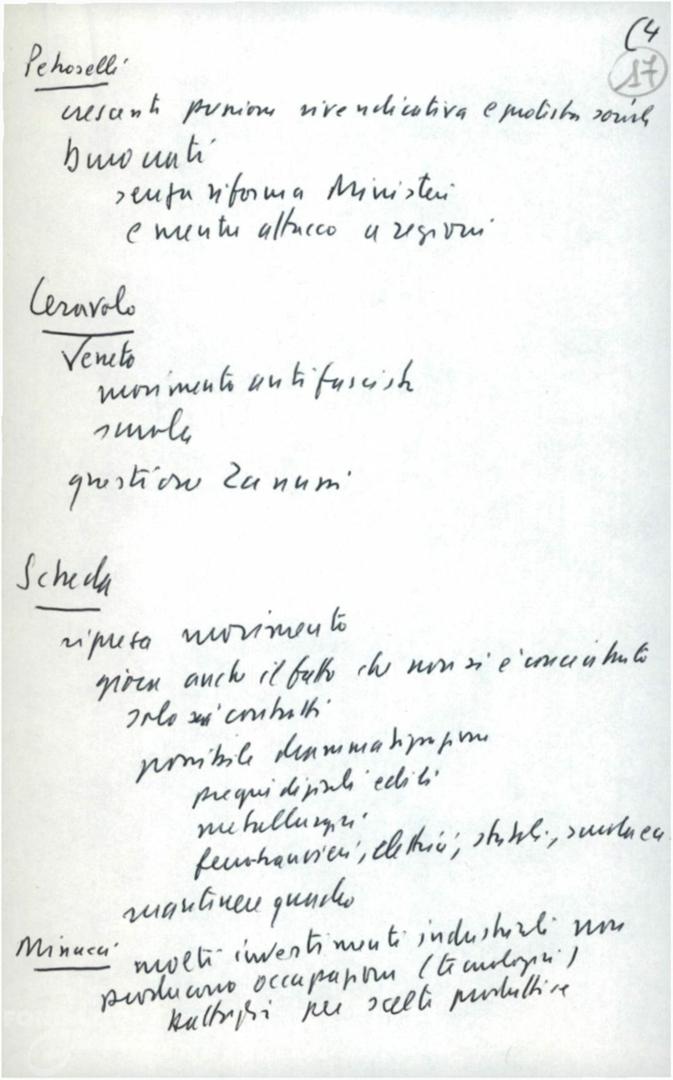 (4
17
Petroselli
crescente pressione rivendicativa e protesta sociale
burocrati
senza riforma Ministeri
e mentre attacco a regioni
Ceravolo
Veneto
movimento antifascista
scuola
questione Zanussi
Scheda
ripresa movimento
gioca anche il fatto che non si è concentrato
solo sui contratti
possibile drammatizzazione
edili
metallurgici
ferrotranvieri, elettrici, statali, scuola ecc
mantenere quadro
Minucci molti investimenti industriali non
producono occupazione (tecnologici)
battaglia per scelte produttive